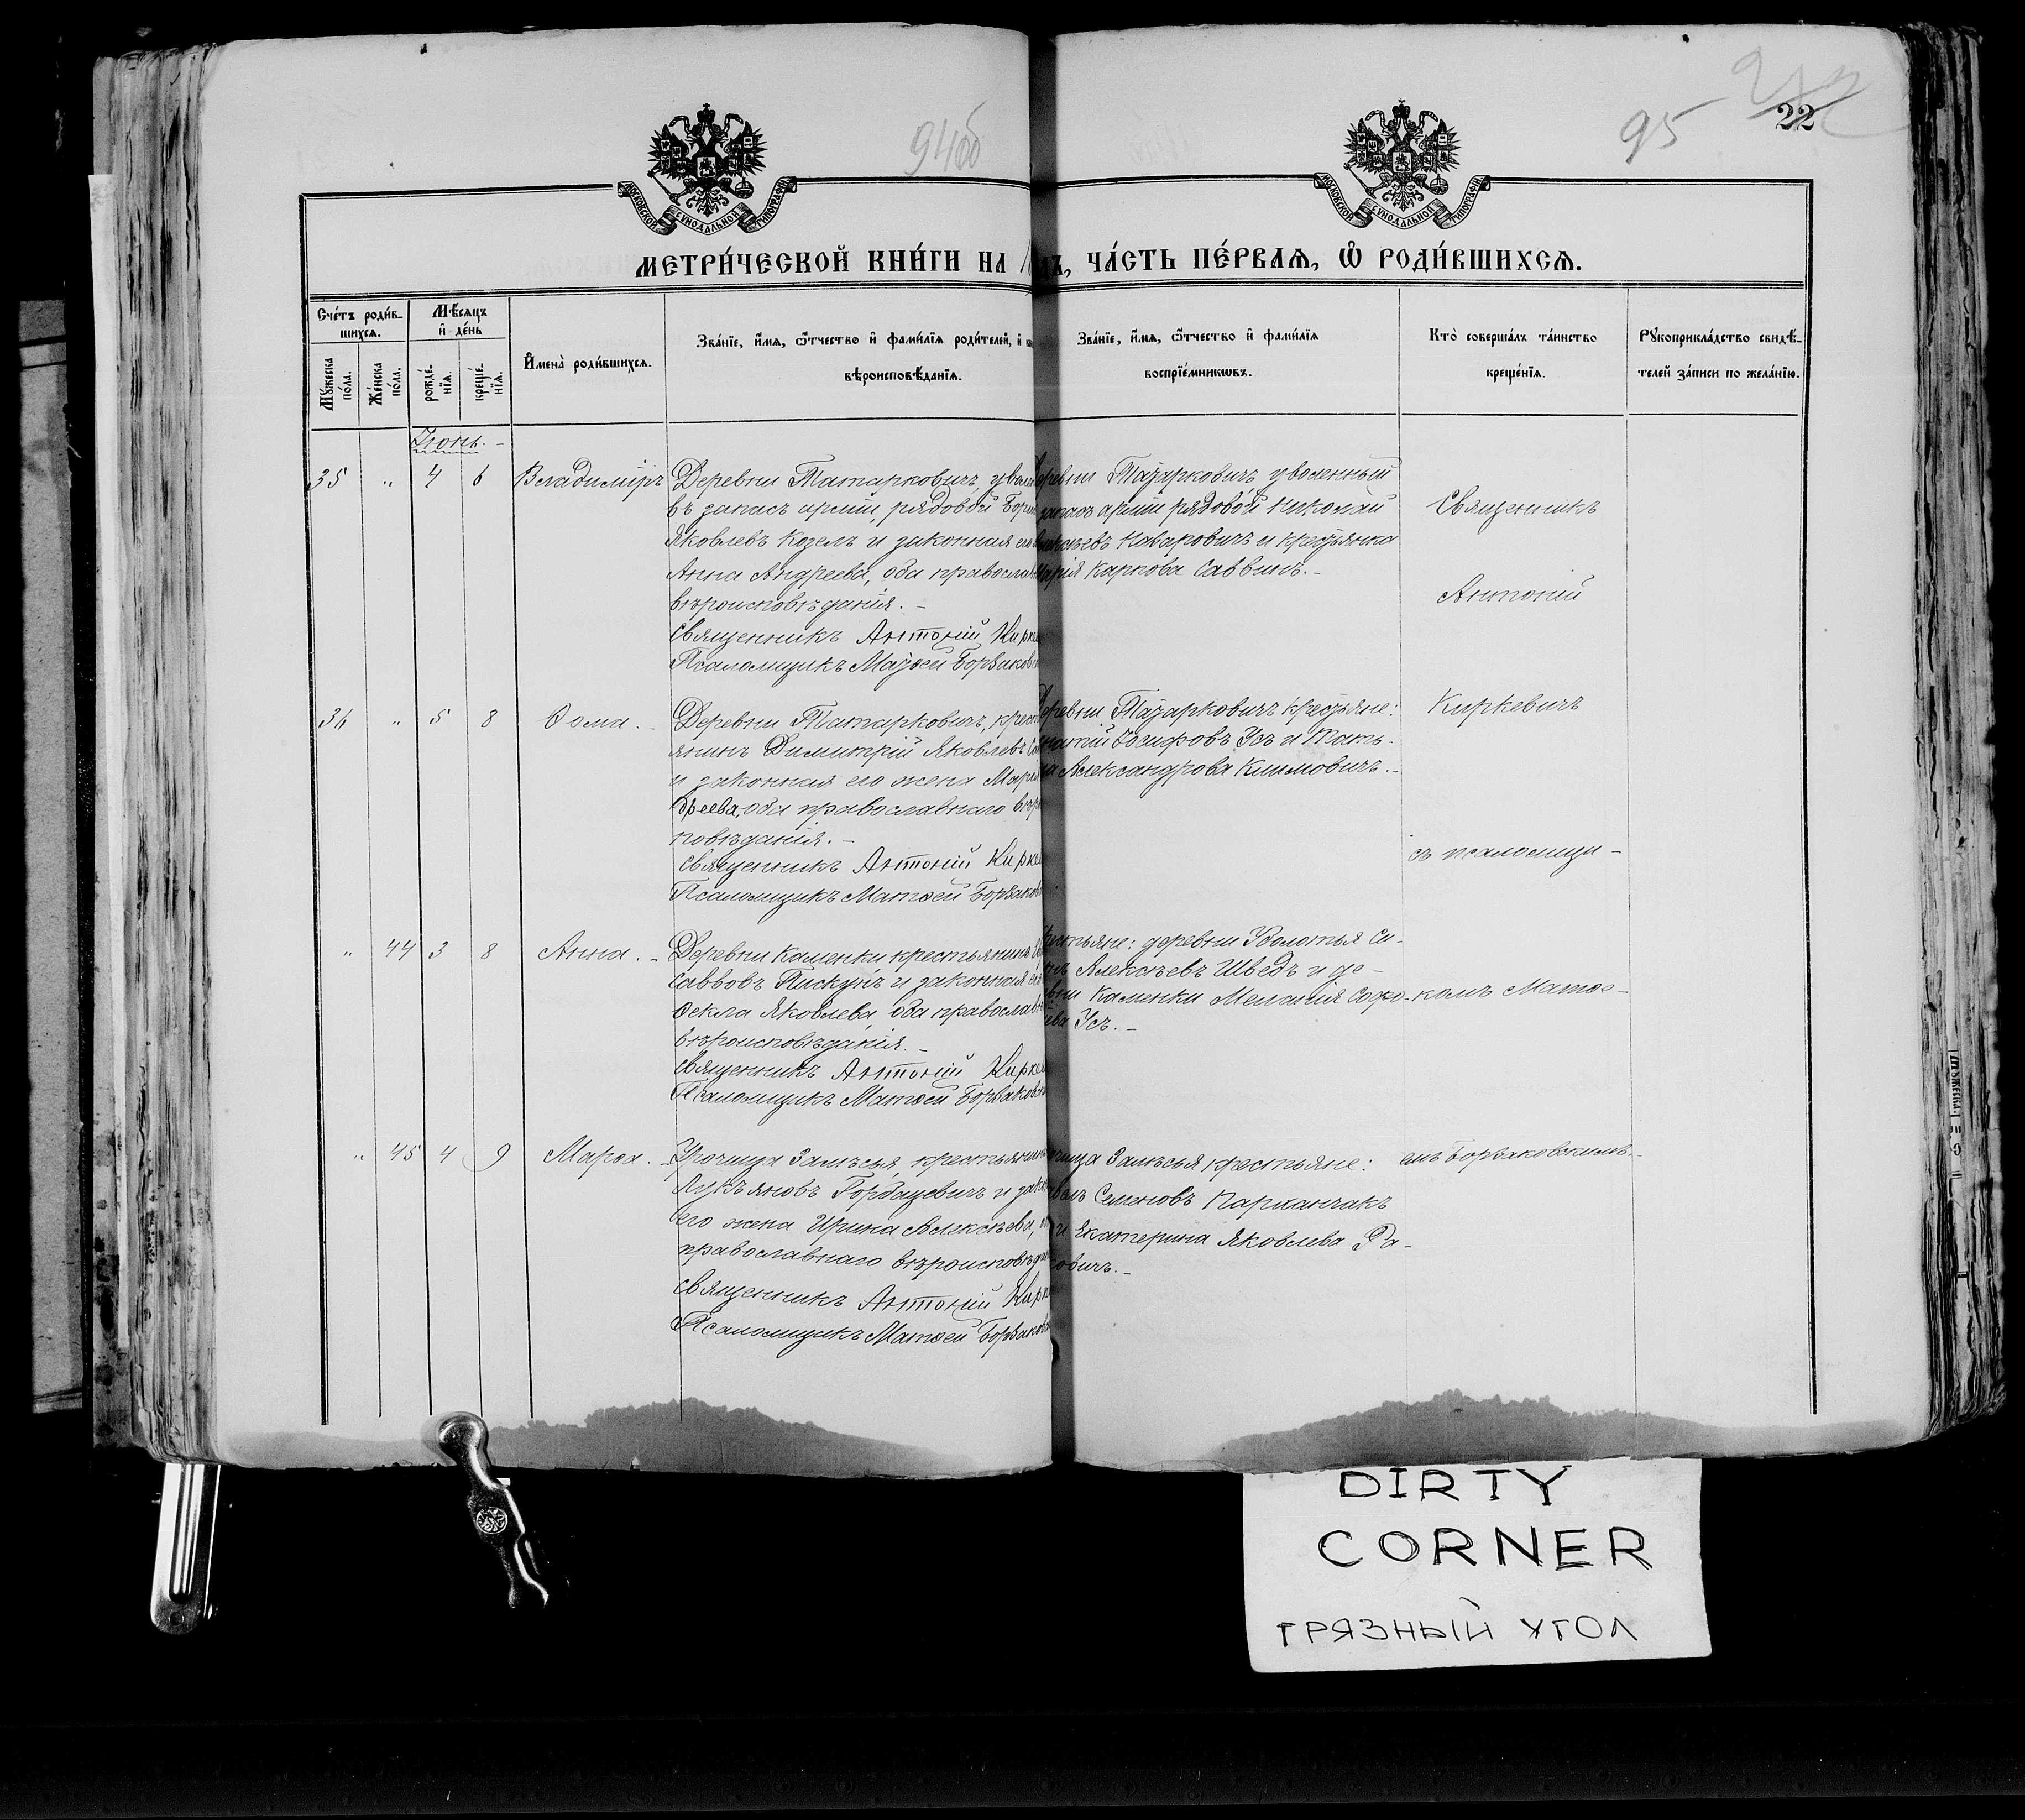 94об
95
22
МОСКОВСКОЙ СУНОДАЛЬНОЙ ТИПОГРАФІИ
МОСКОВСКОЙ СУНОДАЛЬНОЙ ТИПОГРАФІИ
МЕТРИ́ЧЕСКОЙ КНИ́ГИ НА
ЧА́СТЬ ПЕ́РВАѦ, Ѽ РОДИ́ВШИХСѦ.
Сче́тъ роди́в-
шихсѧ.
Мꙋ́жеска по́ла.
Же́нска по́ла.
Мѣ́сѧцъ
и҆ де́нь
рожде́-
нїѧ.
креще́-
нїѧ.
И҆мена̀ роди́вшихсѧ.
Зва́нїе, и҆́мѧ, ѻ҆́тчество и҆ фами́лїѧ роди́телей, и҆
вѣроисповѣ́данїѧ.
Зва́нїе, и҆́мѧ, ѻ҆́тчество и҆ фами́лїѧ
воспрїе́мникѡвъ.
Кто̀ соверша́лъ та́инство
креще́нїѧ.
Рꙋкоприкла́дство свидѣ́-
телей за́писи по жела́нїю.
Іюнь.
35 " 4 6 Владиміръ
Деревни Татарковичъ, увол
въ запасъ арміи, рядовой Бори
Яковлевъ Козелъ и законная его
Анна Андреева, оба православ
вѣроисповѣданія.
Священникъ Антоній Кирке
Псаломщикъ Матѳей Борзаков
ревни Татарковичъ уволенный
запасъ арміи рядовой Николай
ксѣевъ и крестьянка
арія Каркова Саввичъ.
Священникъ
Антоній
36 " 5 8 Ѳома.
Деревни Татарковичъ, крест
янинъ Димитрій Яковлевъ
и законная его жена Марія
дреева, оба православнаго вѣро
повѣданія.
Священникъ Антоній Кирке
Псаломщикъ Матѳей Борзаков
ревни Татарковичъ крестьяне:
натій Іосифовъ Усъ и Тать-
на Александрова Климовичъ.
Киркевичъ
съ псаломщи-
" 44 3 8 Анна.
Деревни Каменки крестьянинъ
Саввовъ Пискунъ и законная его
Ѳекла Яковлева, оба православн
вѣроисповѣданія.
Священникъ Антоній Кирке
Псаломщикъ Матѳей Борзаков
рестьяне: деревни Уболотья Си-
нъ Алексѣевъ Шведъ и де-
вни Каменки Меланія Софо-
ева Усъ.
комъ Матѳе-
" 45 4 9 Марѳа.
Урочища Залѣсья, крестьянинъ
Лукьяновъ Горбацевичъ и зак
его жена Ирина Алексѣева,
православнаго вѣроисповѣда
Священникъ Антоній Кирк
Псаломщикъ Матѳей Борзаков
чища Залѣсья крестьяне:
Семеновъ Парманчакъ
и Екатерина Яковлева Ра-
ковичъ.
емъ Борзаковскимъ.
DIRTY
CORNER
ГРЯЗНЫЙ УГОЛ